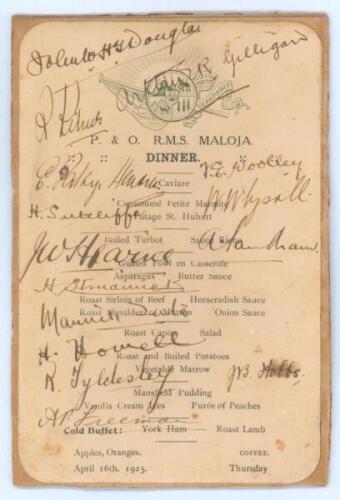 John W.H.T. Douglas
Arthur E.R. Gilligan
R Kilner
P. & O. R.M.S. MALOJA.
DINNER.
E. Patsy Hendren
F.E. Woolley
Caviare
Consommé Petite Marmite
W W Whysall
H. Sutcliffe
Potage St. Hubert
Boiled Turbot
A Sandham
J W Hearne
Guinea Fowl en Casserole
Asparagus Butter Sauce
H Strudwick
Roast Sirloin of Beef Horseradish Sauce
Roast Shoulder of Mutton Onion Sauce
Maurice Tate
Roast Capon Salad
H. Howell
Roast and Boiled Potatoes
Vegetable Marrow
J.B. Hobbs
R. Tyldesley
Mansfield Pudding
Vanilla Cream Ices Purée of Peaches
A P Freeman
Cold Buffet: York Ham Roast Lamb
Apples, Oranges. COFFEE.
April 16th. 1925. Thursday